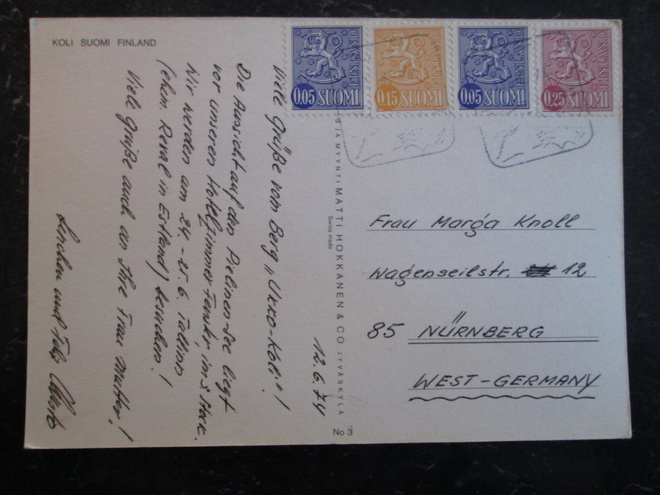 KOLI SUOMI FINLAND
0.05 SUOMI
0.15 SUOMI
0.05 SUOMI
0.25 SUOMI
12.6.74
Viele Grüße vom Berg „Ukko-Koli“!
Die Aussicht auf den Pielinen-See liegt
vor unserem Hotelzimmerfenster im 3. Stock.
Wir werden am 24.-25.6. Tallinn
(ehem. Reval in Estland) besuchen!
Viele Grüße auch an Ihre Frau Mutter!
und
JA MYYNTI MATTI HOKKANEN & CO JYVÄSKYLÄ
Swiss made
No 3
Frau Marga Knoll
Wagenseilstr. 12
85 NÜRNBERG
WEST-GERMANY